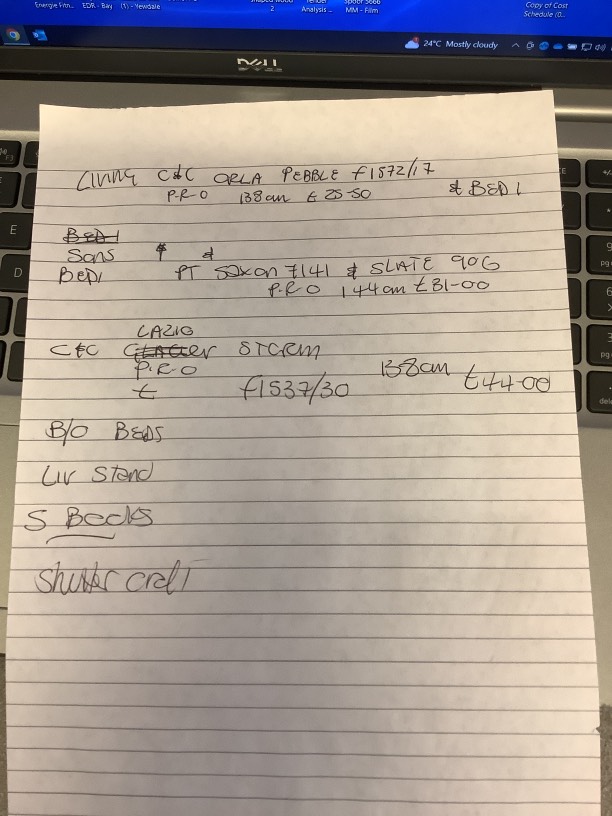 Energie Fitn.. EDR - Bay (1) - Yewdale
Analysis ... MM - Film
Copy of Cost
Schedule (0..
24°C Mostly cloudy
DELL
Living C&C ORLA PEBBLE F1572/17
P.R.O 138cm £25-50 & BED 1
BED 1
Sons & &
BED1 PT Saxon 7141 & SLATE 906
P.R.O 144cm £31-00
LAZIO
C&C STORM
P.R.O 138cm £44-00
£ F1537/30
B/O BEDS
Liv Stand
S Becks
Shutter craft